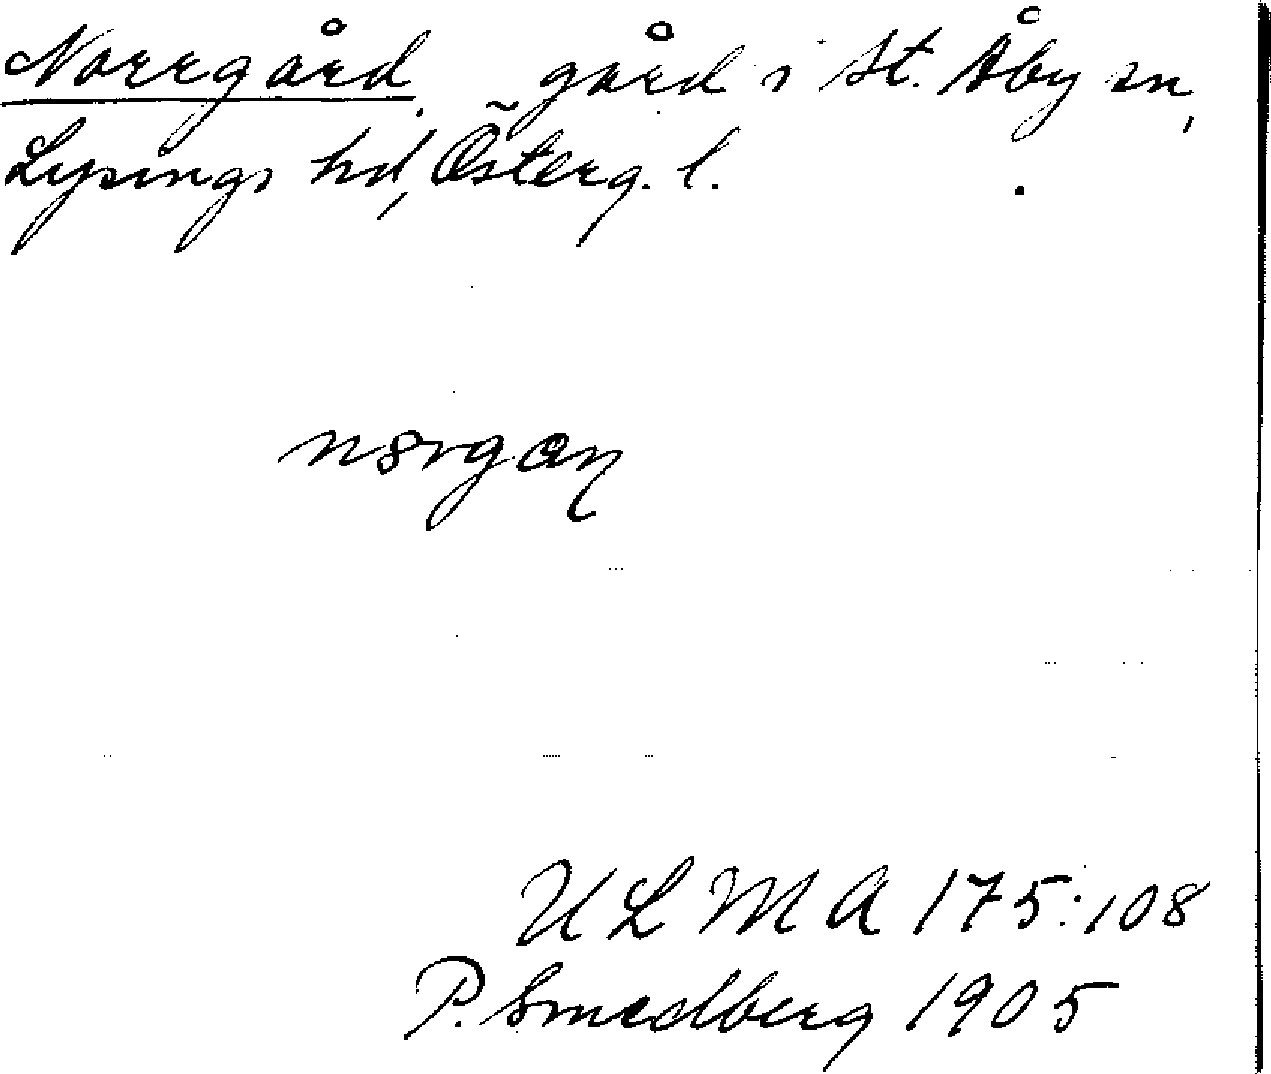 Norrgård, gård i St. Åby sn,
Lysings hd, Österg. l.
ULMA 175:108
P. Smedberg 1905